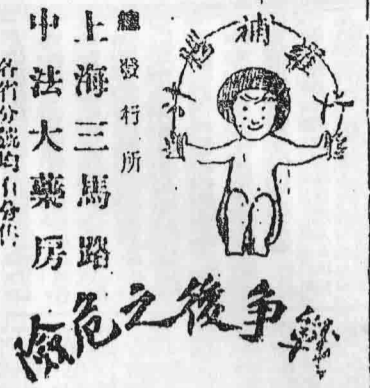 補
總發行所
上海三馬路
中法大藥房
各省分號均有分售
戰争後之危險